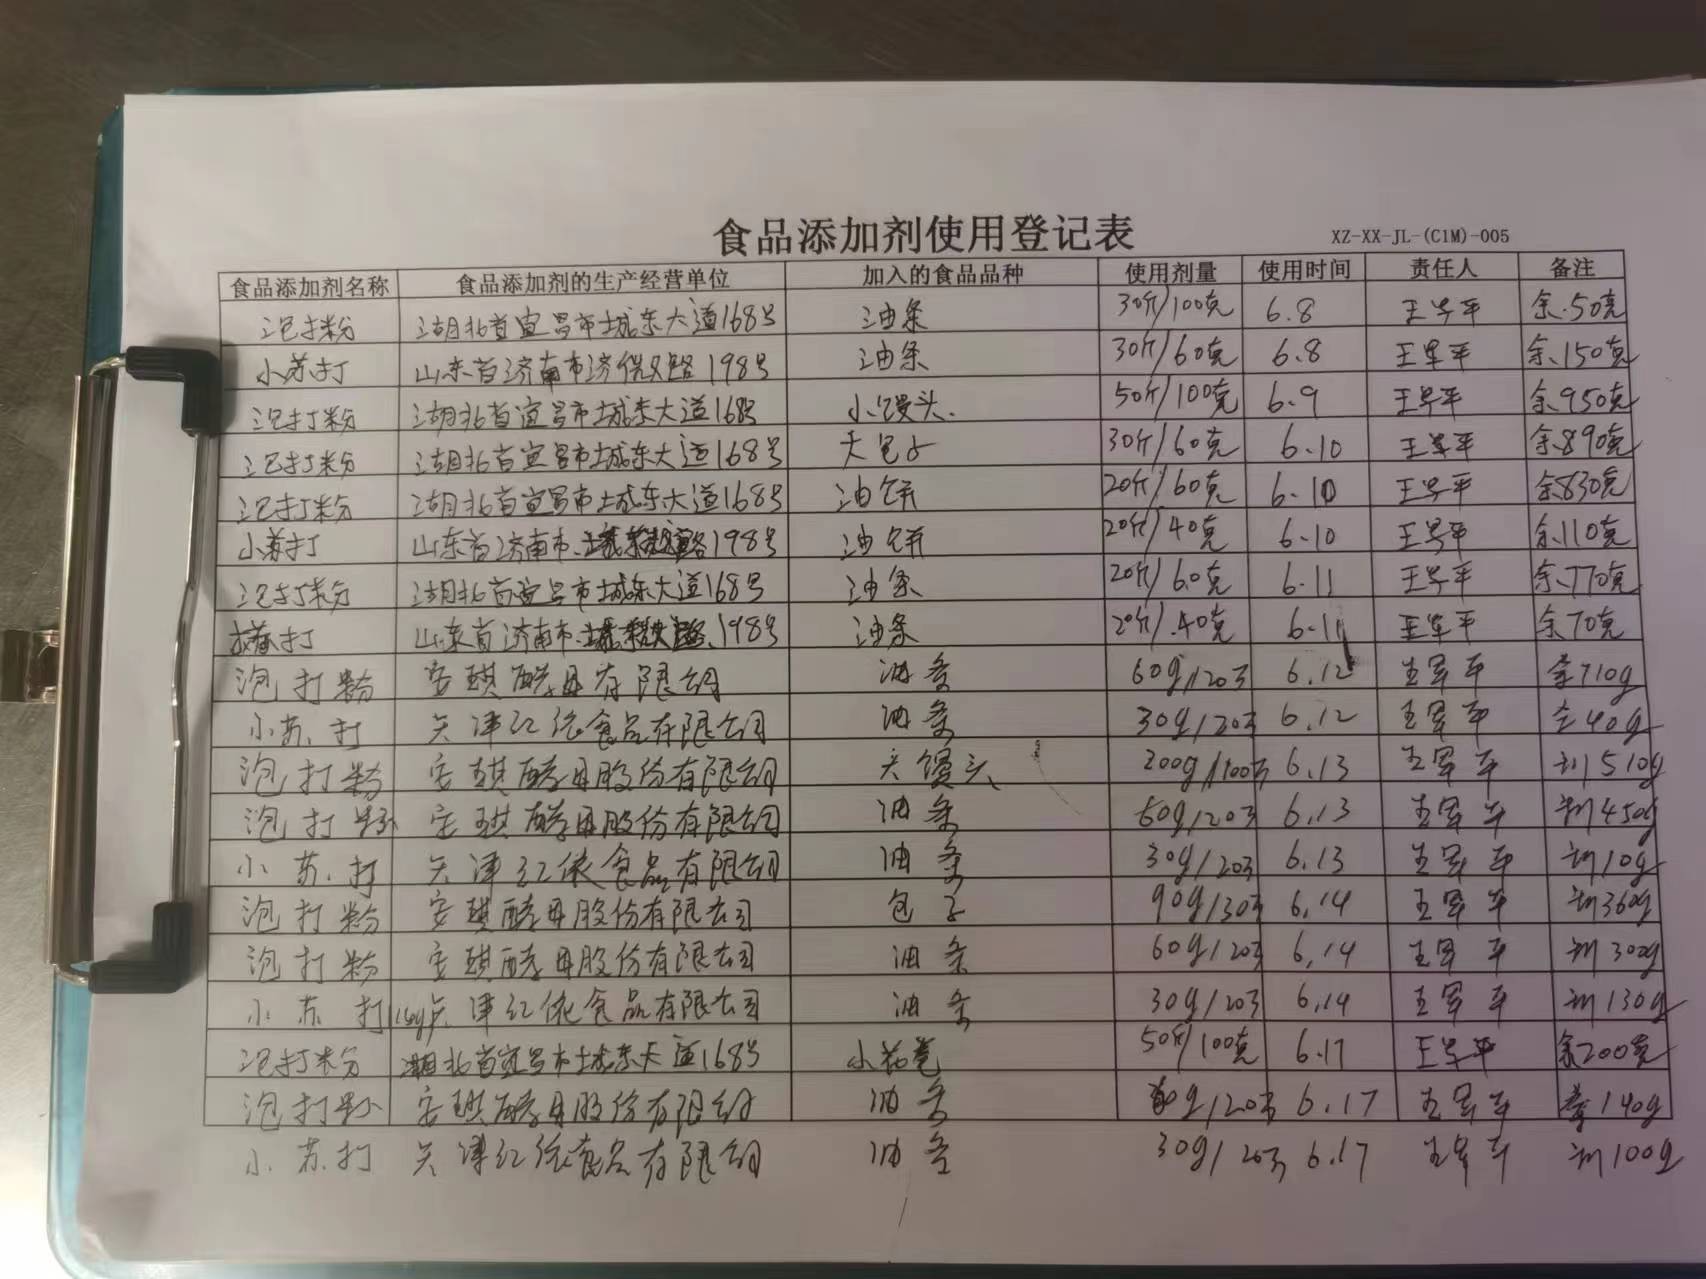 食品添加剂使用登记表 XZ-XX-JL-(C1M)-005
食品添加剂名称 食品添加剂的生产经营单位 加入的食品品种 使用剂量 使用时间 责任人 备注
泡打粉 湖北省宜昌市城东大道168号 油条 30斤/100克 6.8 王军平 余.50克
小苏打 山东省济南市济 路198号 油条 30斤/60克 6.8 王军平 余150克
泡打粉 湖北省宜昌市城东大道168号 小馒头. 50斤/100克 6.9 王军平 余950克
泡打粉 湖北省宜昌市城东大道168号 大包子 30斤/60克 6.10 王军平 余890克
泡打粉 湖北省宜昌市城东大道168号 油饼 20斤/60克 6.10 王军平 余830克
小苏打 山东省济南市. 路198号 油饼 20斤/40克 6.10 王军平 余110克
泡打粉 湖北省宜昌市城东大道168号 油条 20斤/60克 6.11 王军平 余770克
苏打 山东省济南市. 198号 油条 20斤/40克 6.11 王军平 余70克
泡打粉 安琪酵母有限公司 油条 60g/20斤 6.12 王军平 余710g
小苏打 天津红 食品有限公司 油条 30g/20斤 6.12 王军平 余40g
泡打粉 安琪酵母股份有限公司 大馒头 200g/100斤 6.13 王军平 剩510g
泡打粉 安琪酵母股份有限公司 油条 60g/20斤 6.13 王军平 剩450g
小苏打 天津红 食品有限公司 油条 30g/20斤 6.13 王军平 剩10g
泡打粉 安琪酵母股份有限公司 包子 90g/30斤 6.14 王军平 剩360g
泡打粉 安琪酵母股份有限公司 油条 60g/20斤 6.14 王军平 剩300g
小苏打 天津红 食品有限公司 油条 30g/20斤 6.14 王军平 剩130g
泡打粉 湖北省宜昌市城东大道168号 小花卷 50斤/100克 6.17 王军平 余200克
泡打粉 安琪酵母股份有限公司 油条 60g/20斤 6.17 王军平 余140g
小苏打 天津红 食品有限公司 油条 30g/20斤 6.17 王军平 剩100g